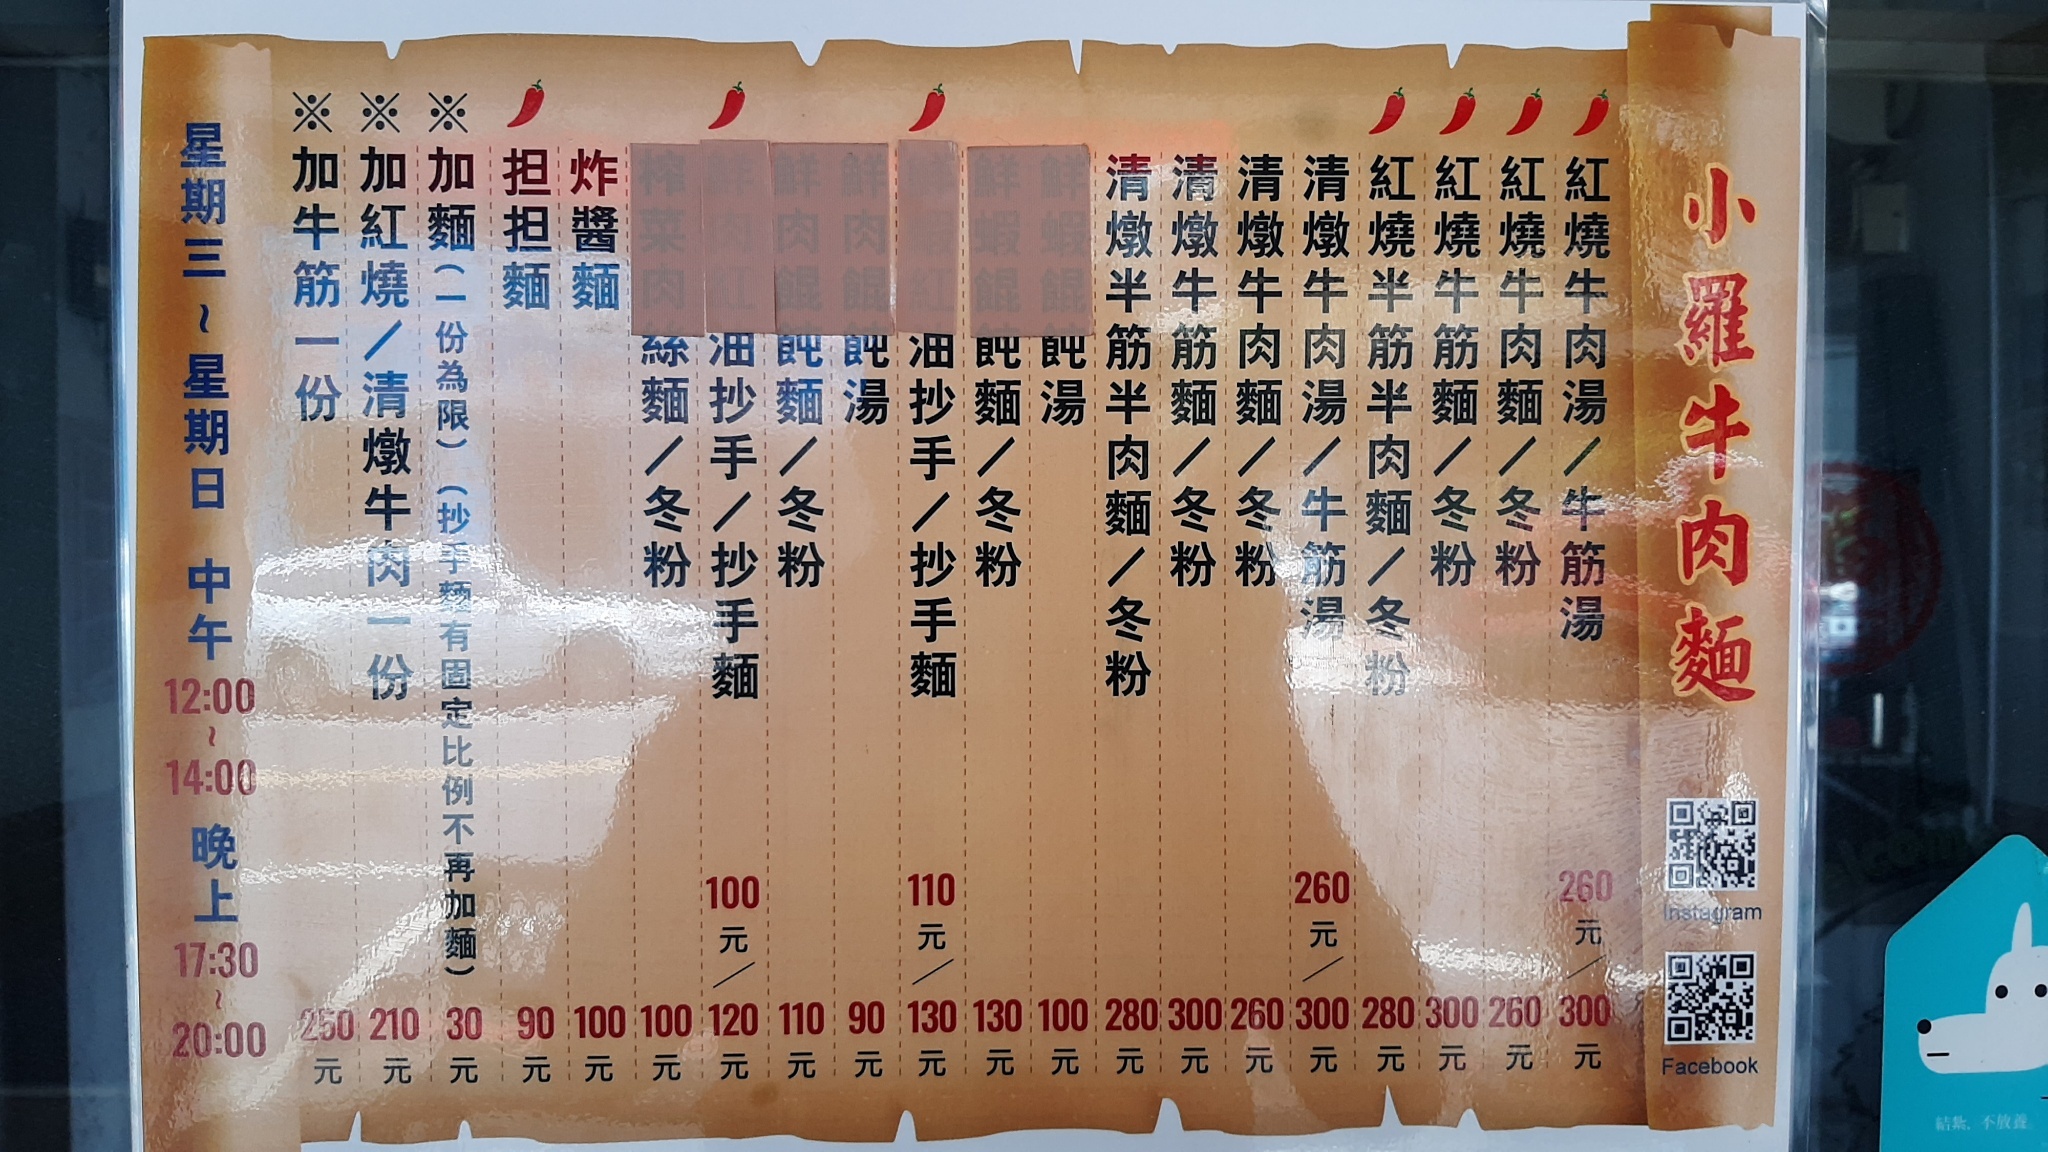 小羅牛肉麵
Instagram
Facebook
紅燒牛肉湯/牛筋湯 260元/300元
紅燒牛肉麵/冬粉 260元
紅燒牛筋麵/冬粉 300元
紅燒半筋半肉麵/冬粉 280元
清燉牛肉湯/牛筋湯 260元/300元
清燉牛肉麵/冬粉 260元
清燉牛筋麵/冬粉 300元
清燉半筋半肉麵/冬粉 280元
鮮蝦餛飩湯 100元
鮮蝦餛飩麵/冬粉 130元
鮮蝦紅油抄手/抄手麵 110元/130元
鮮肉餛飩湯 90元
鮮肉餛飩麵/冬粉 110元
油抄手/抄手麵 100元/120元
榨菜肉絲麵/冬粉 100元
炸醬麵 100元
担担麵 90元
※加麵(一份為限)(抄手麵有固定比例不再加麵) 30元
※加紅燒/清燉牛肉一份 210元
※加牛筋一份 250元
星期三~星期日 中午 12:00~14:00 晚上 17:30~20:00
結紮、不放養